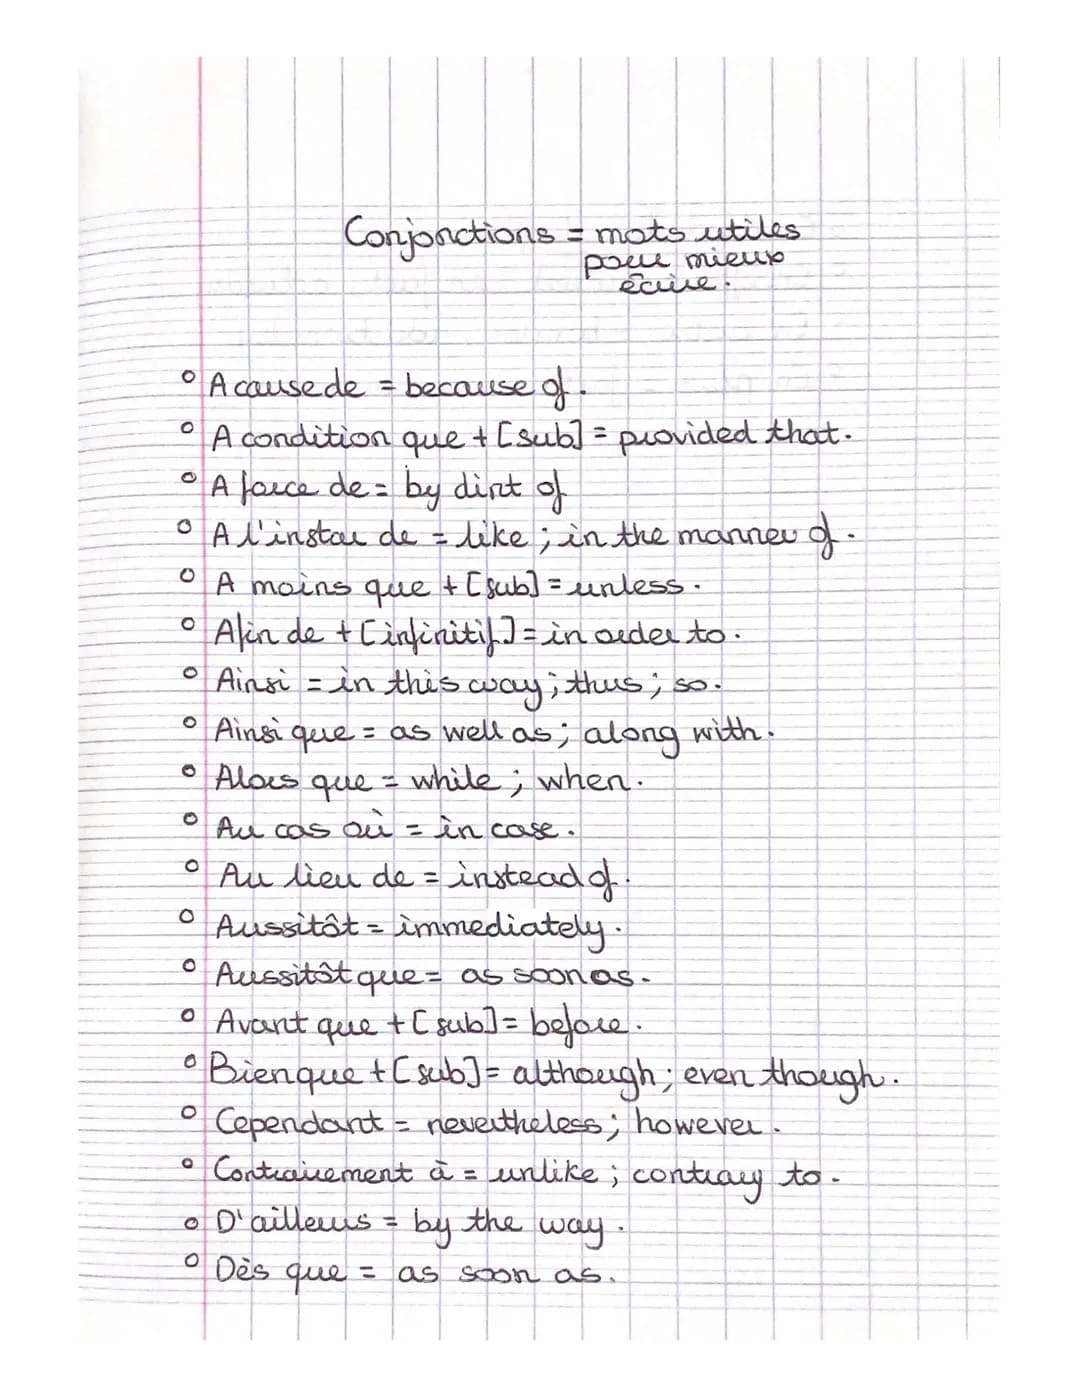 Conjonctions = mots utiles
pour mieux
écrire.
° A cause de = because of.
° A condition que + [sub] = provided that.
° A force de = by dint of
° A l'instar de = like ; in the manner of.
° A moins que + [sub] = unless.
° Afin de + [infinitif] = in order to.
° Ainsi = in this way ; thus ; so.
° Ainsi que = as well as ; along with.
° Alors que = while ; when.
° Au cas où = in case.
° Au lieu de = instead of.
° Aussitôt = immediately.
° Aussitôt que = as soon as.
° Avant que + [sub] = before.
° Bien que + [sub] = although ; even though.
° Cependant = nevertheless ; however.
° Contrairement à = unlike ; contrary to.
° D'ailleurs = by the way.
° Dès que = as soon as.